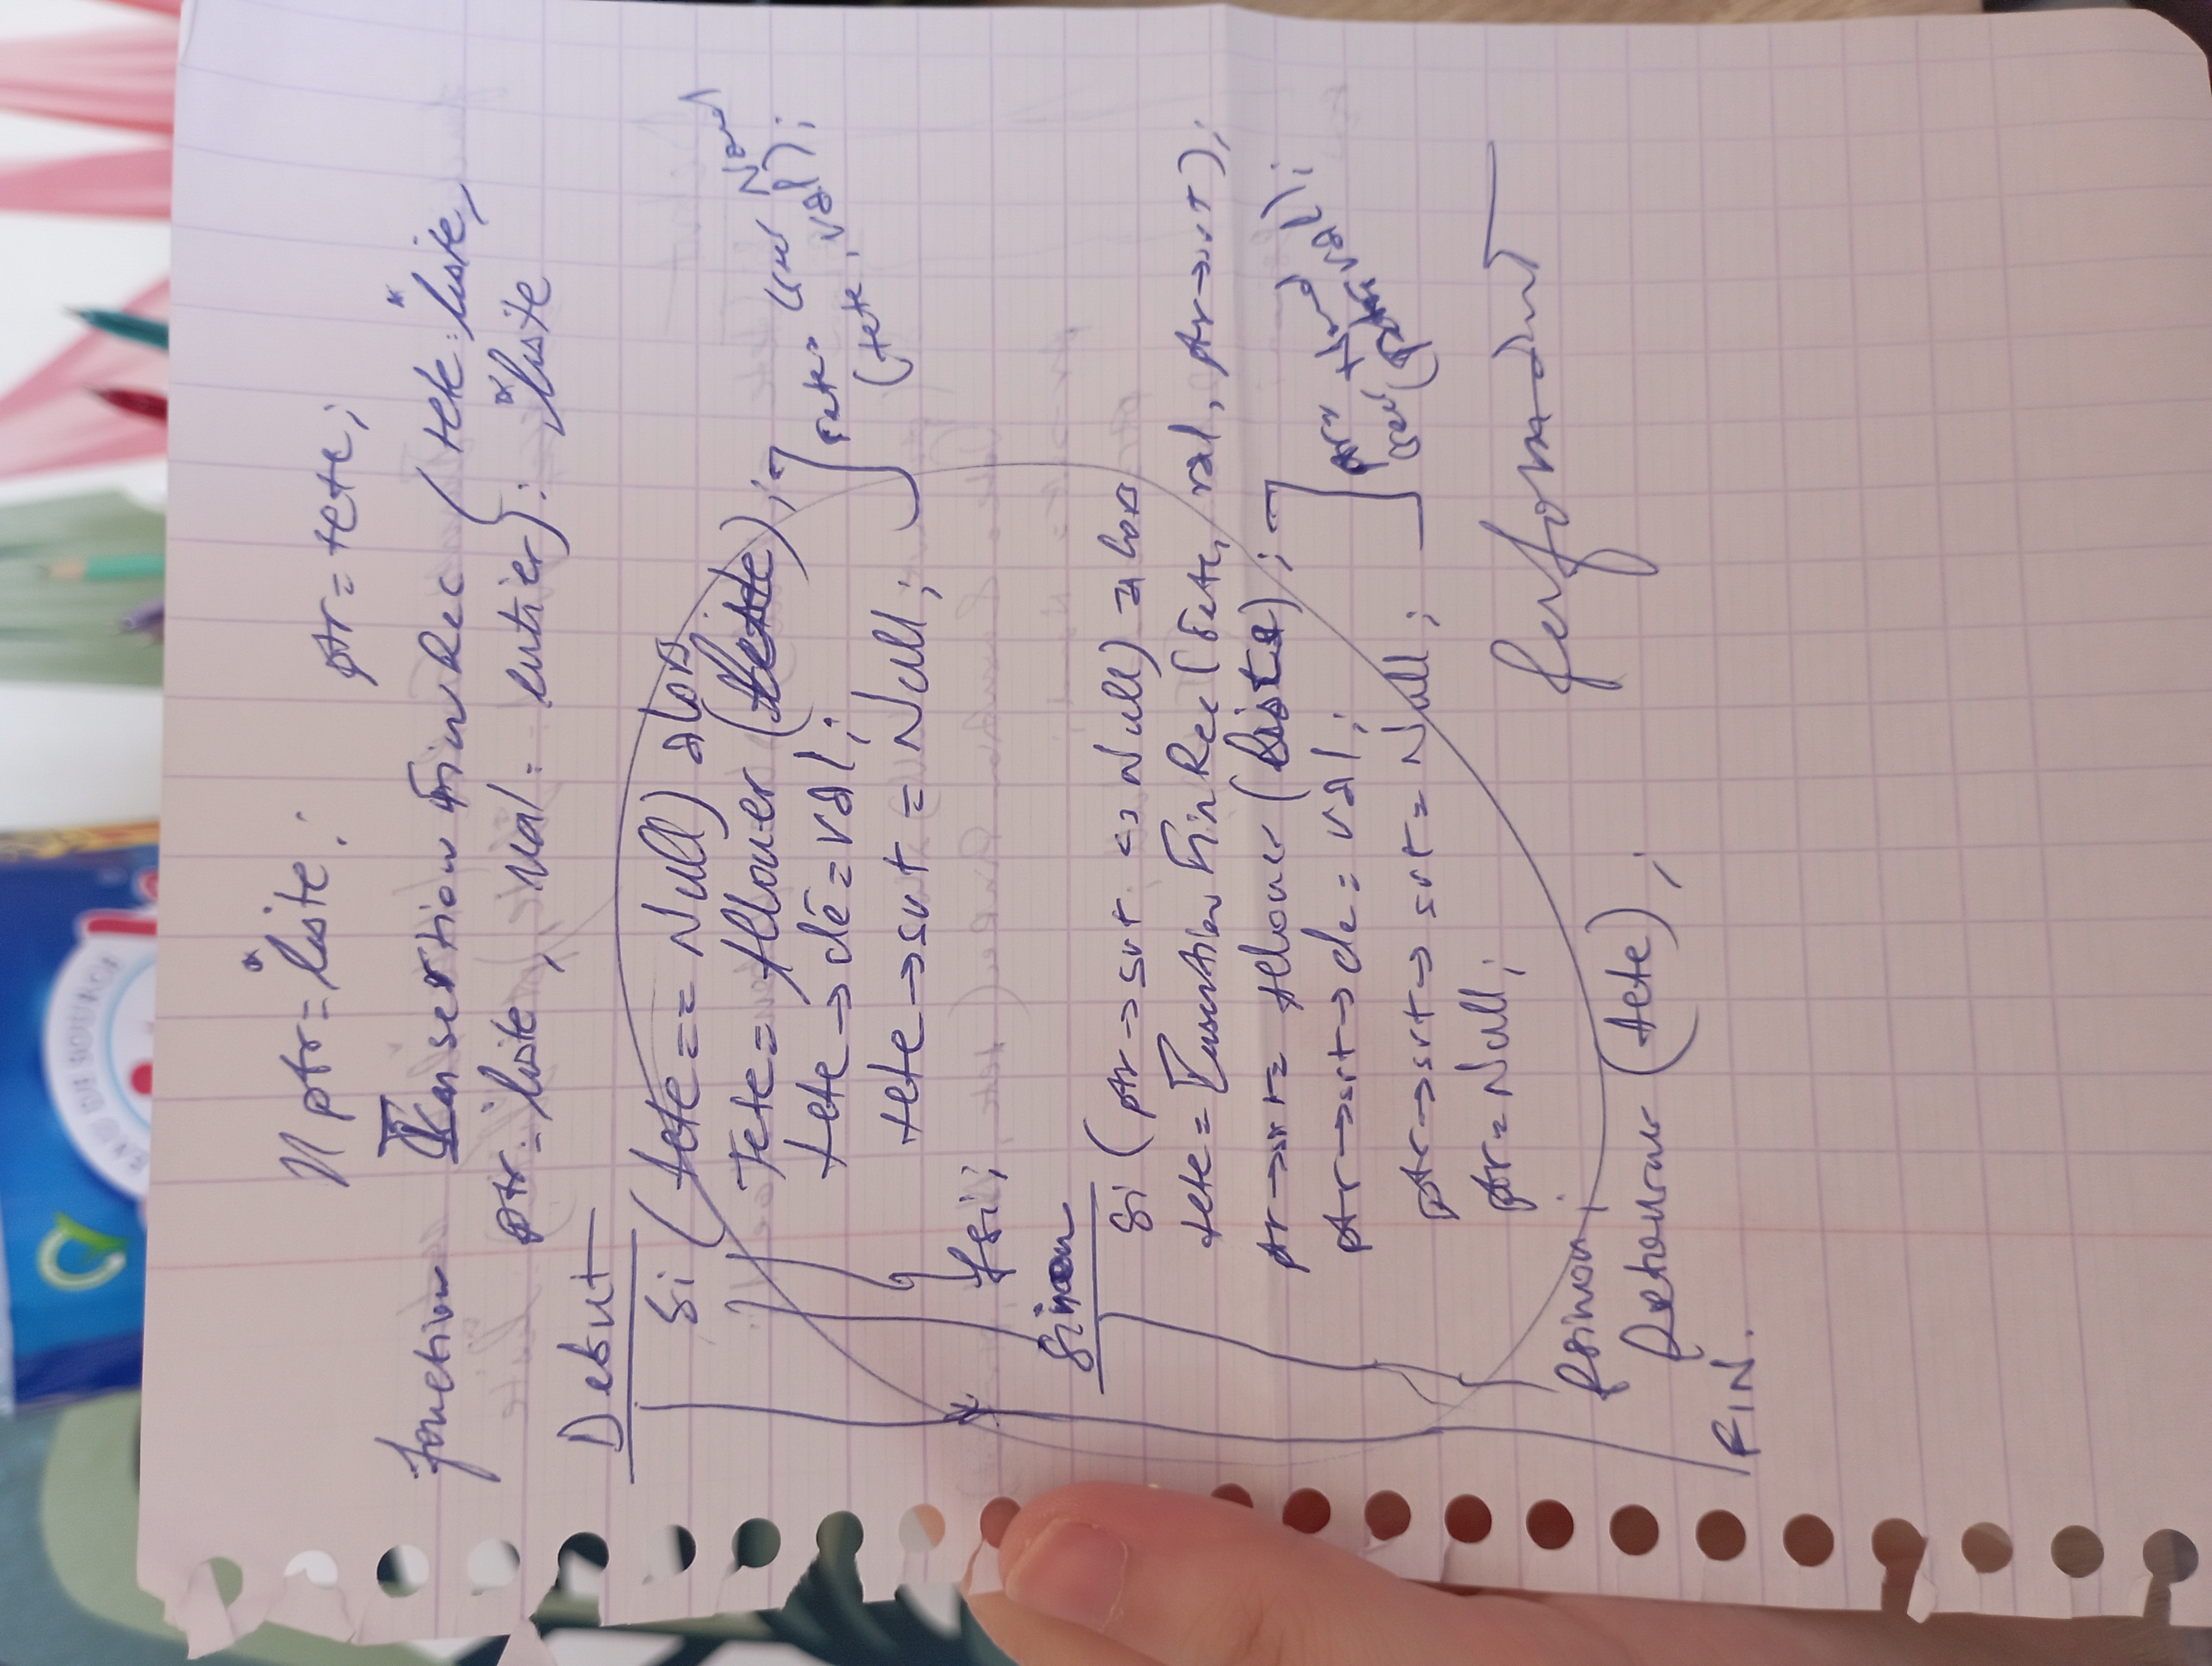 EAU DE SOURCE
ptr = *liste; ptr = tete;
fonction InsertionFinRec (tete: *liste,
ptr: *liste, val: entier): *liste
Debut
Si (tete == Null) alors
Tete = Allouer (liste);
tete → de = val;
tete → svt = Null;
Tete = Creer Noeud
(tete, val);
fsi;
Sinon
Si (ptr → svt <> Null) alors
tete = InsertionFinRec (Tete, val, ptr → svt);
ptr → svt = Allouer (liste);
ptr → svt → de = val;
ptr → svt → svt = Null;
ptr =
creer Noeud
(ptr, val);
ptr = Null;
fsinon;
Retourner (tete);
FIN.